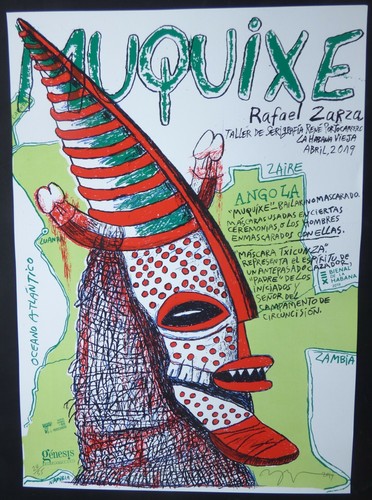 MUQUIXE
Rafael Zarza
TALLER DE SERIGRAFÍA RENÉ PORTOCARRERO
LA HABANA VIEJA
ABRIL, 2019
ZAIRE
ANGOLA
"MUQUIXE"-BAILARINO MASCARADO.
MÁSCARAS USADAS EN CIERTAS
CEREMONIAS, O LOS HOMBRES
ENMASCARADOS CON ELLAS.
MÁSCARA TXICUNZA"
REPRESENTA EL ESPÍRITU DE
UN ANTEPASADO CAZADOR,
"PADRE" DE LOS
INICIADOS Y
SEÑOR DEL
CAMPAMENTO DE
CIRCUNCISIÓN.
BIENAL
DE LA
HABANA
LUANDA
OCEANO ATLÁNTICO
ZAMBIA
Génesis